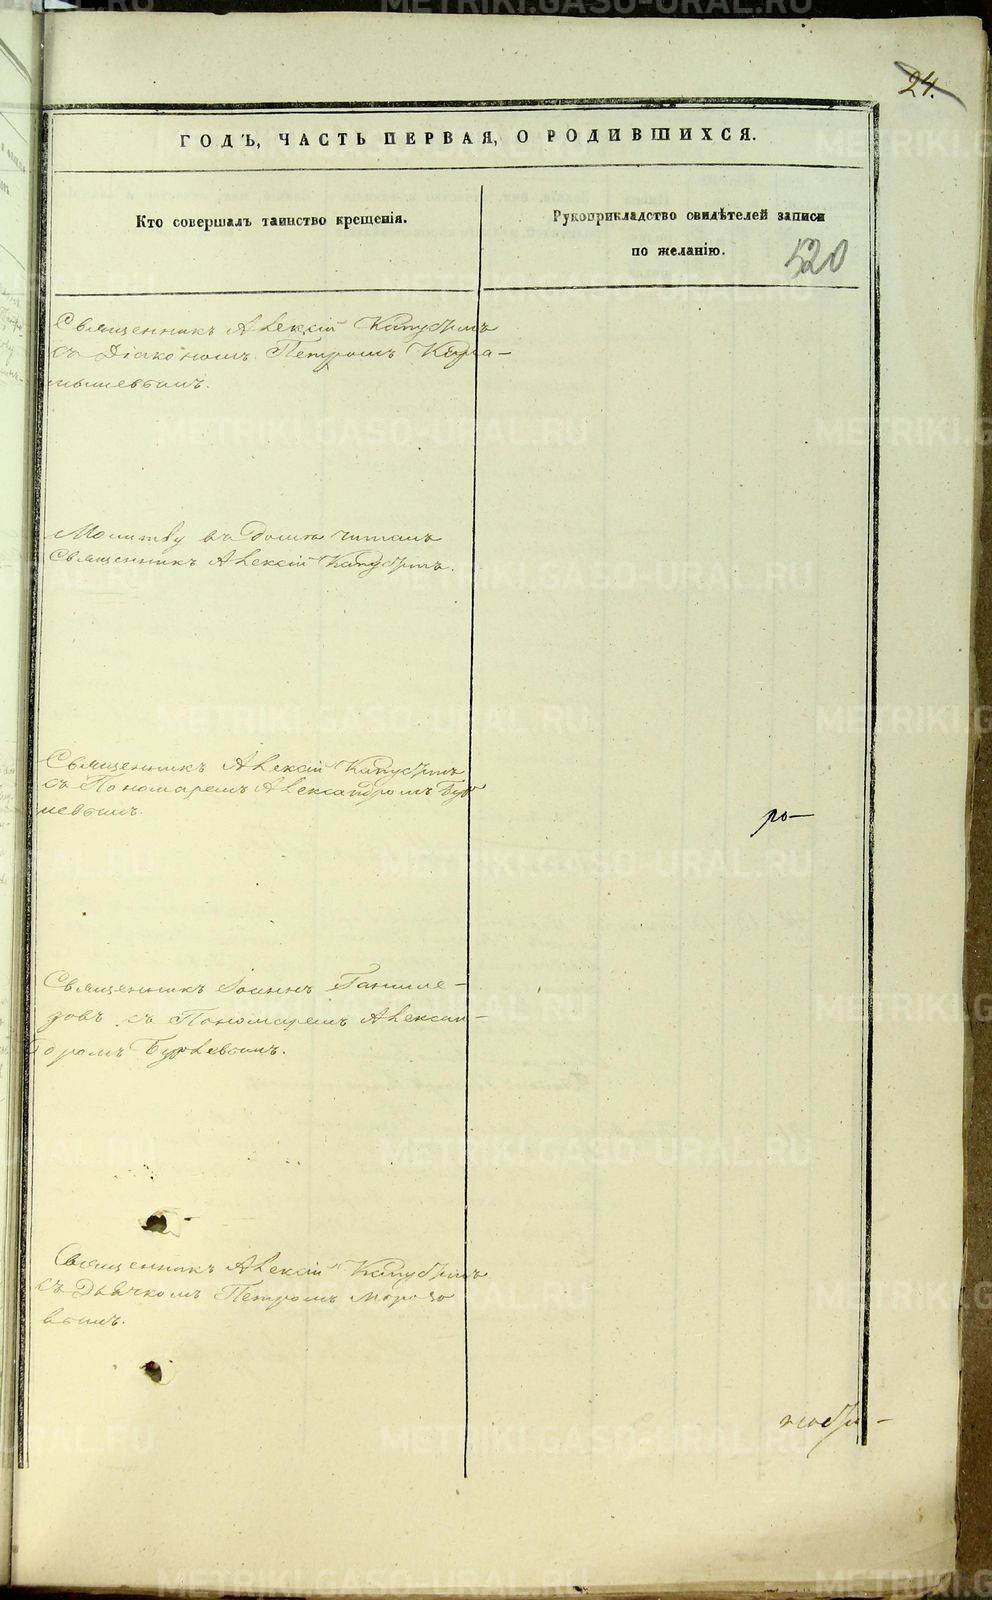 24.
ГОДЪ, ЧАСТЬ ПЕРВАЯ, О РОДИВШИХСЯ.
Кто совершалъ таинство крещенія.
Рукоприкладство свидѣтелей записи
по желанію.
520
Священникъ Алексій Капустинъ
съ Діакономъ Петромъ Кара-
мышевымъ.
Молитву въ домѣ читалъ
Священникъ Алексій Капустинъ.
Священникъ Алексій Капустинъ
съ Пономаремъ Александромъ
Священникъ Іоаннъ
съ Пономаремъ Алексан-
дромъ
Священникъ Алексій Капустинъ
съ Дьячкомъ Петромъ Морозо
вымъ.
ро-
METRIKI.GASO-URAL.RU